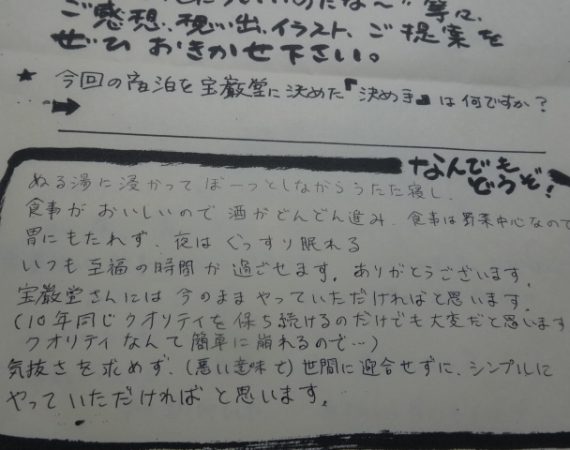 ご感想、思い出、イラスト、ご提案を
ぜひ おきかせ下さい。
★ 今回の宿泊を宝巌堂に決めた『決め手』は何ですか？
なんでも
どうぞ！
ぬる湯に浸かって ぼーっとしながらうたた寝し、
食事が おいしいので 酒がどんどん進み、食事は野菜中心なので
胃にもたれず、夜は ぐっすり眠れる
いつも 至福の時間が 過ごせます。ありがとうございます。
宝巌堂さんには 今のまま やっていただければと思います。
(10年同じクオリティを 保ち続けるのだけでも大変だと思います
クオリティなんて 簡単に崩れるので…)
気抜さを求めず、(悪い意味で)世間に迎合せずに、シンプルに
やって いただければ と思います。